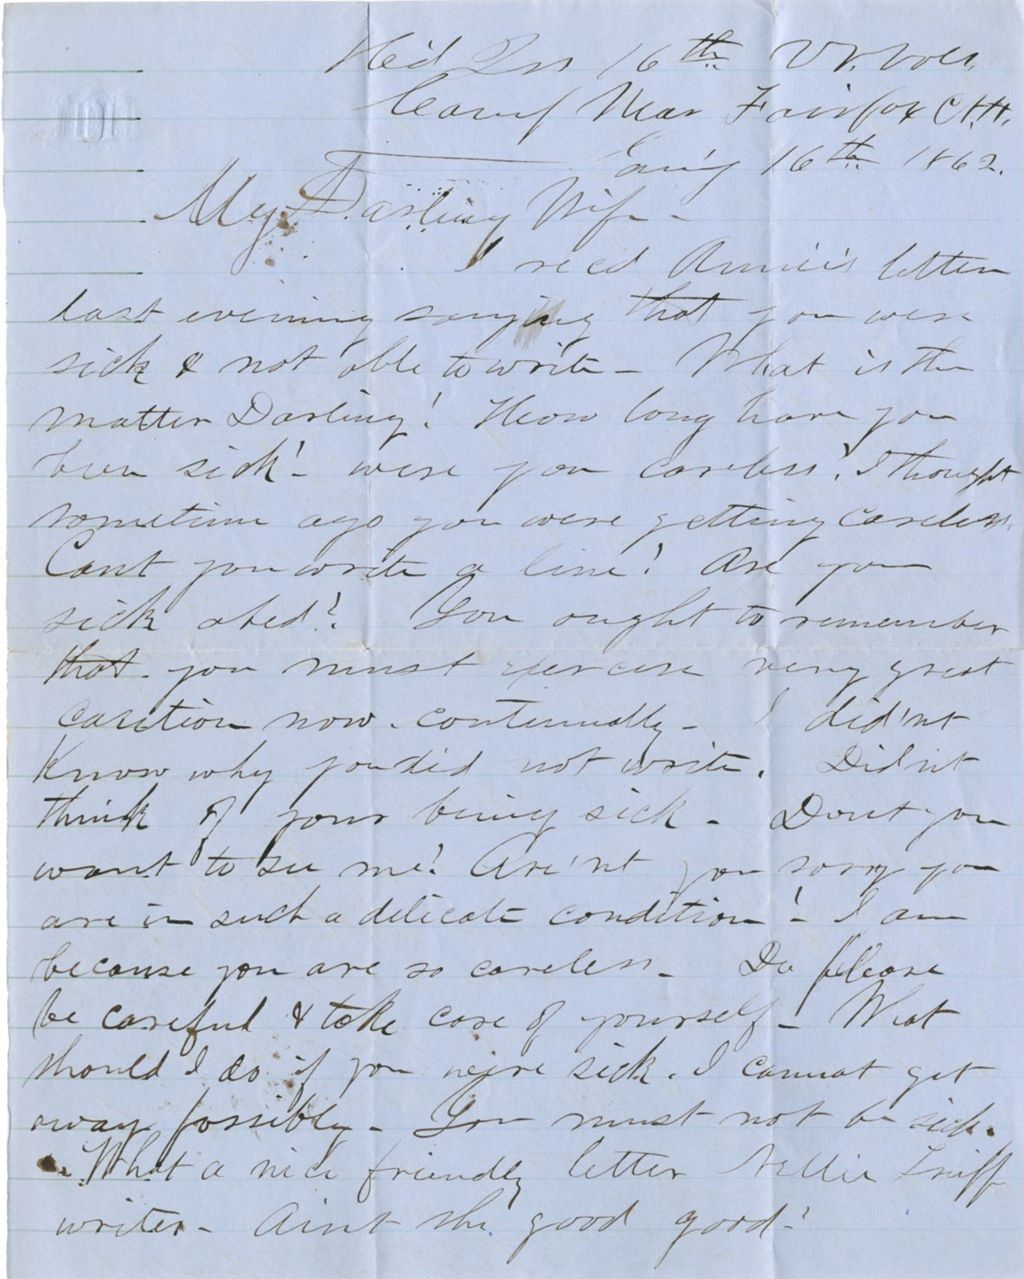 Hd Qrs 16th Vt. Vols.
Camp Near Fairfax C.H.
Jan'y 16th 1862.
My Darling Wife -
I recd Annie's letter
last evening saying that you were
sick & not able to write - What is the
matter Darling? How long have you
been sick? - were you careless? I thought
sometime ago you were getting careless.
Cant you write a line? Are you
sick abed? You ought to remember
that you must exercise very great
caution now continually - I did'nt
Know why you did not write. Did'nt
think of your being sick - Dont you
want to see me? Are'nt you sorry you
are in such a delicate condition? - I am
because you are so careless - Do please
be careful & take care of yourself - What
should I do if you were sick. I cannot get
away possibly - You must not be sick.
What a nice friendly letter Nellie
writes - Aint she good good?